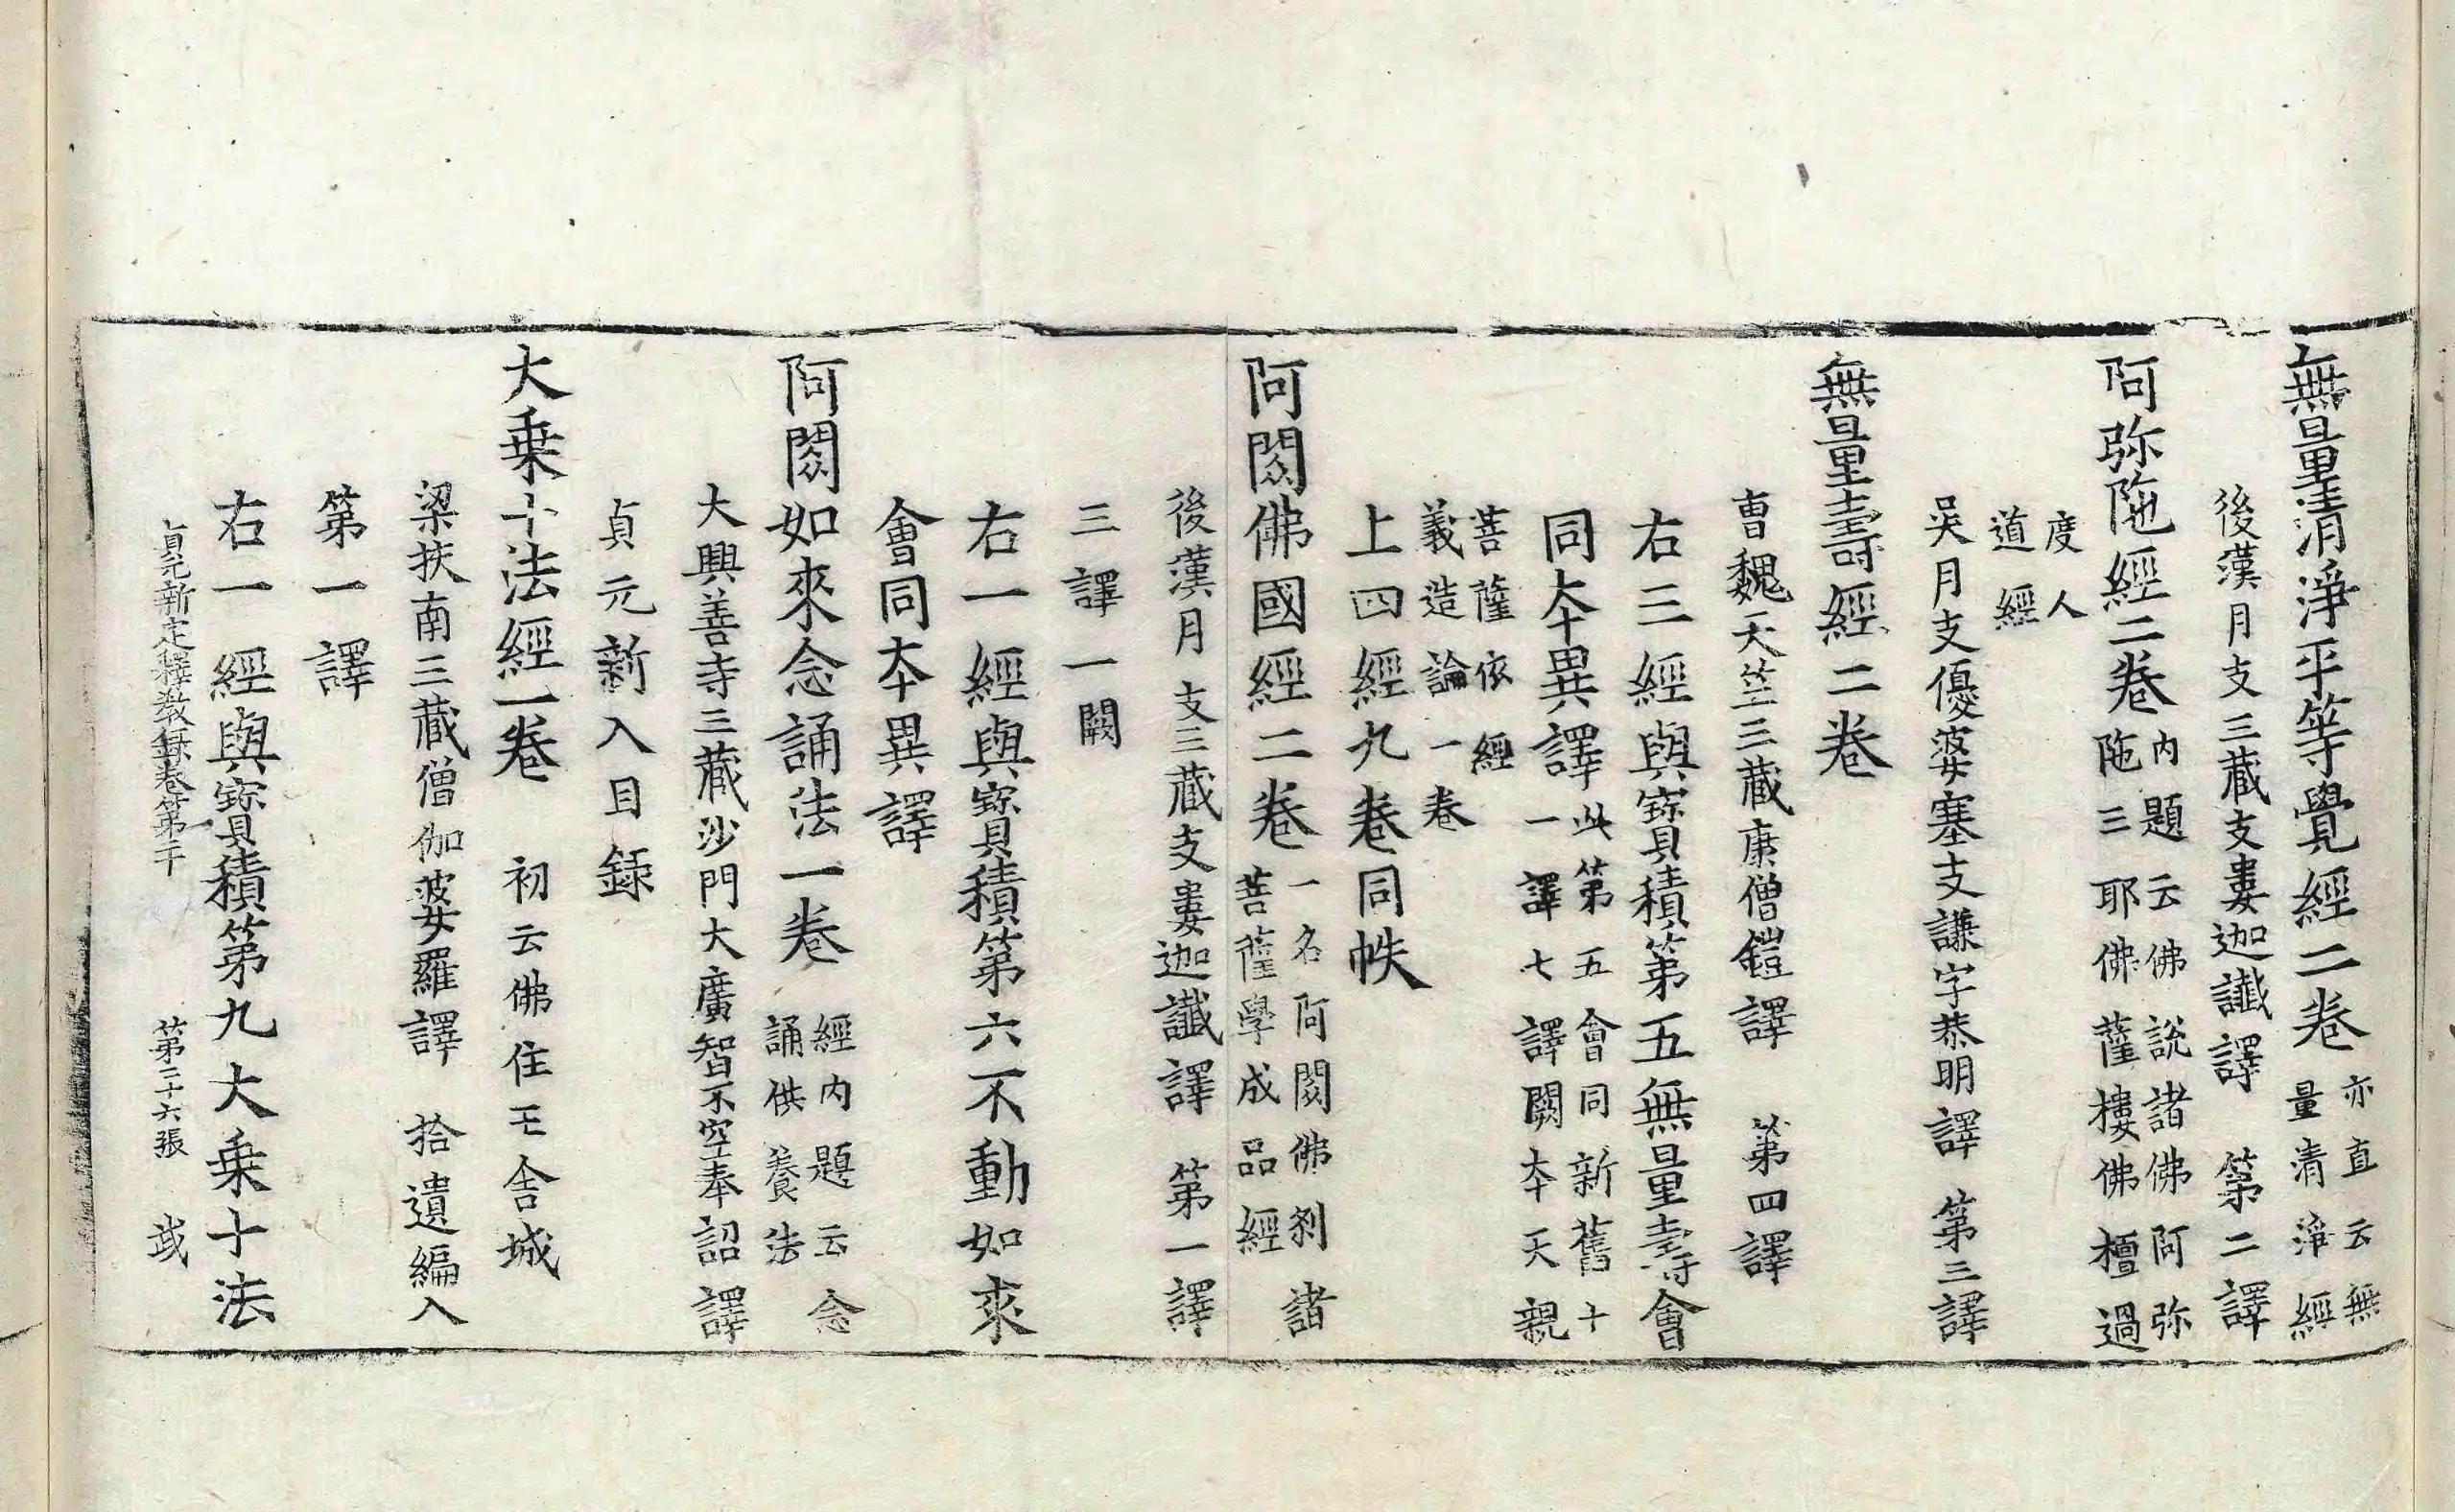 無量清淨平等覺經二卷亦直云無
量清淨經
後漢月支三藏支婁迦讖譯 第二譯
阿弥陁經二卷内題云佛說諸佛阿弥
陁三耶佛薩樓佛檀過
度人
道經
吳月支優婆塞支謙字恭明譯 第三譯
無量壽經二卷
曹魏天竺三藏康僧鎧譯 第四譯
右三經與寶積第五無量壽會
同本異譯此第五會同新舊十
一譯七譯闕本天親
菩薩依經
義造論一卷
上四經九卷同帙
阿閦佛國經二卷一名阿閦佛刹諸
菩薩學成品經
後漢月支三藏支婁迦讖譯 第一譯
三譯一闕
右一經與寶積第六不動如來
會同本異譯
阿閦如來念誦法一卷經内題云念
誦供養法
大興善寺三藏沙門大廣智不空奉詔譯
貞元新入目録
大乗十法經一卷 初云佛住王舎城
梁扶南三藏僧伽婆羅譯 拾遺編入
第一譯
右一經與寶積第九大乗十法
貞元新定釋教録卷第二十 第二十六張 武